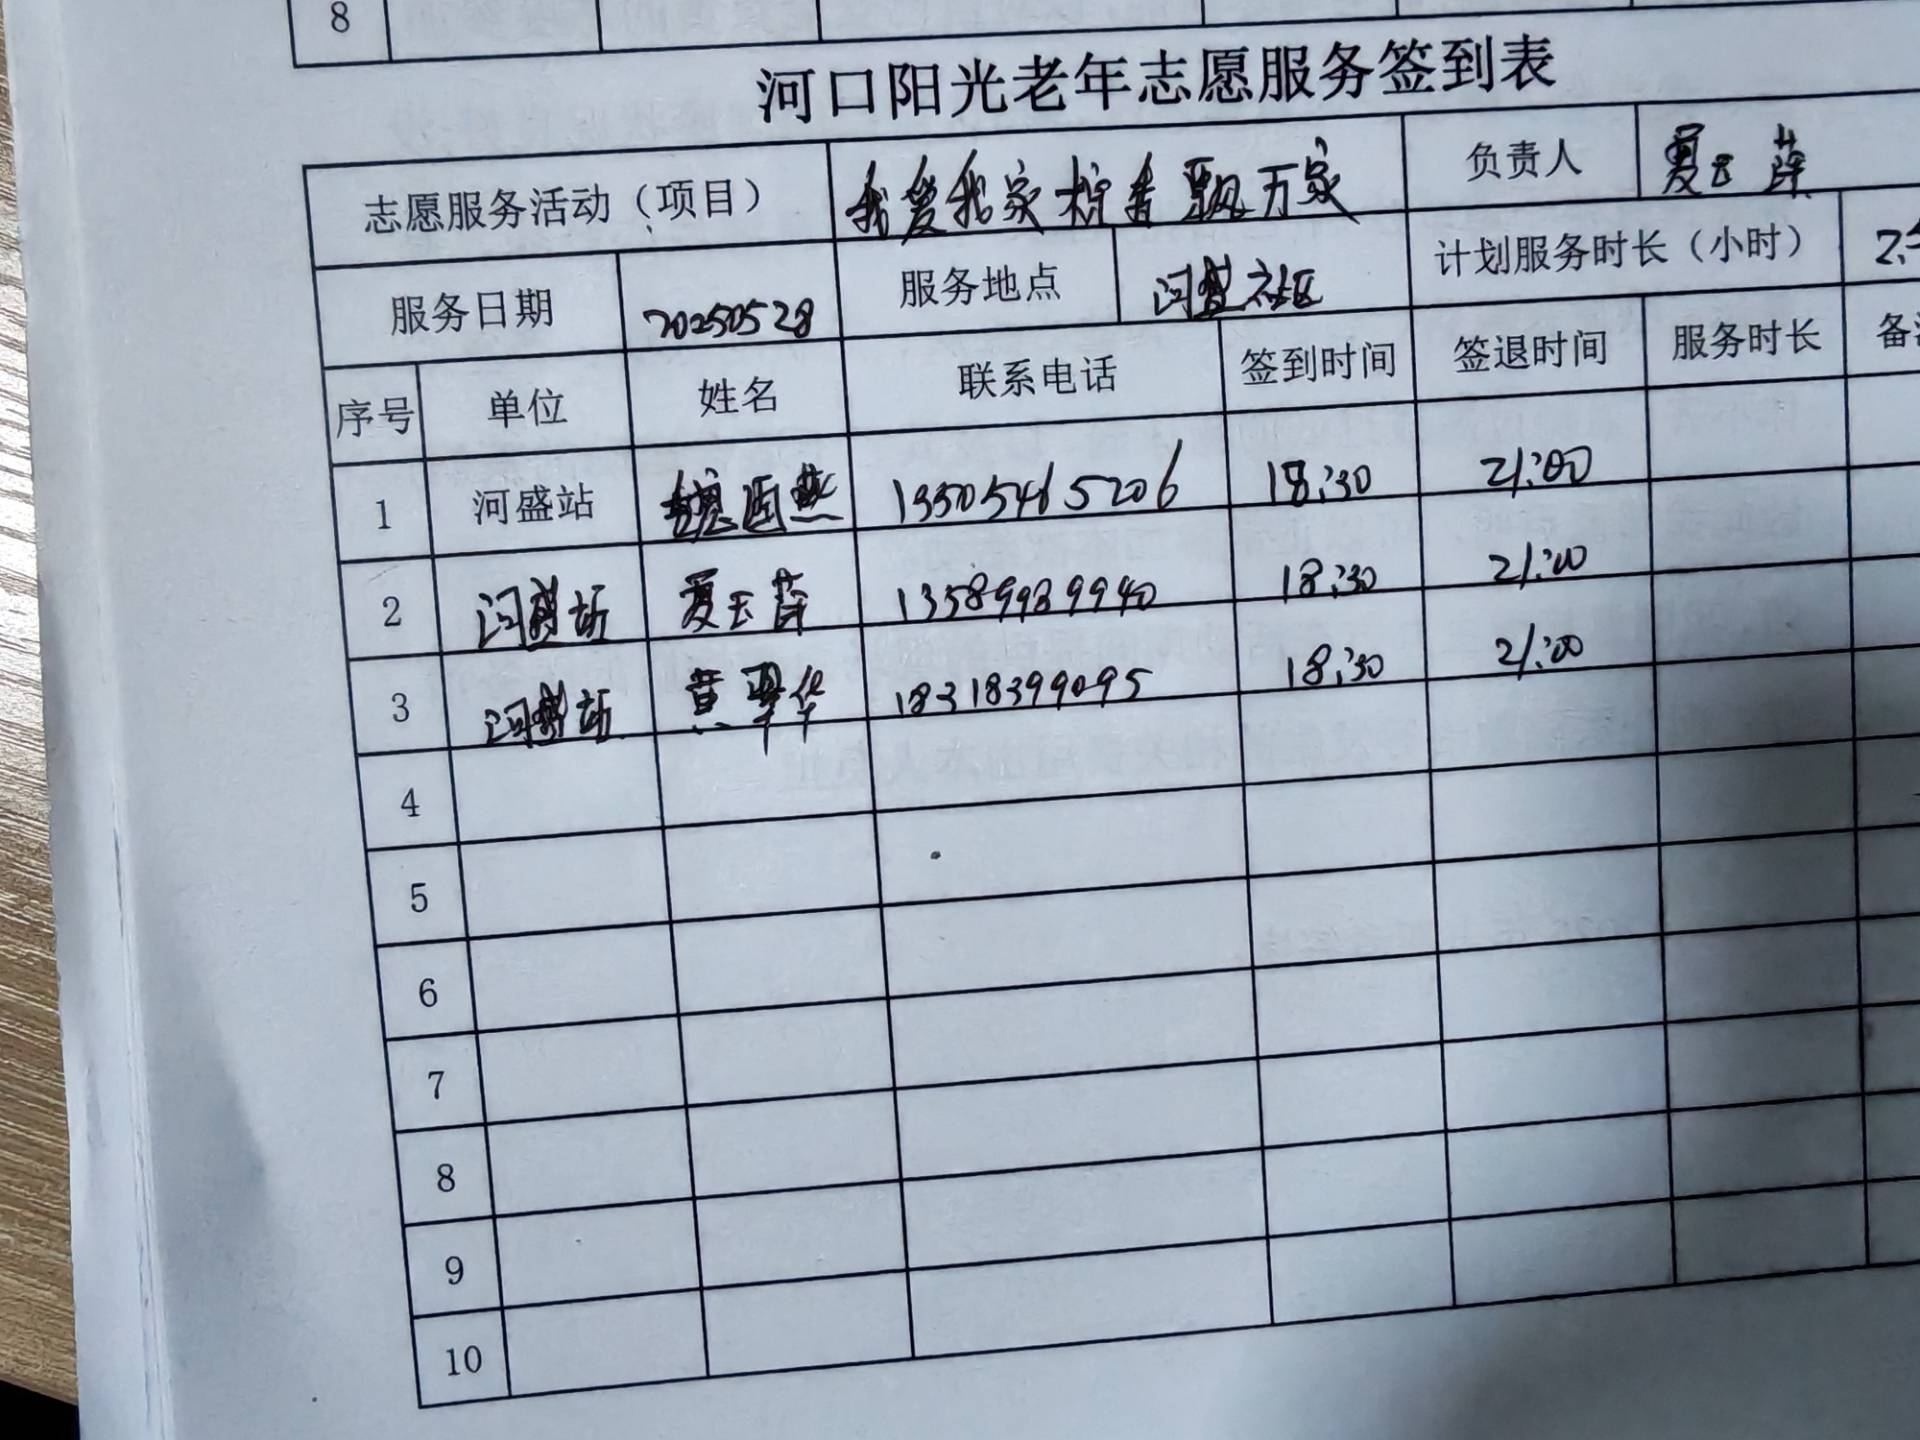 8
河口阳光老年志愿服务签到表
志愿服务活动（项目） 我爱我家 香飘万家 负责人 夏玉萍
服务日期 20250528 服务地点 河盛社区 计划服务时长（小时）
序号 单位 姓名 联系电话 签到时间 签退时间 服务时长 备
1 河盛站 13505465206 18:30 21:00
2 河盛站 夏玉萍 13589939940 18:30 21:00
3 河盛站 黄翠华 18318399095 18:30 21:00
4
5
6
7
8
9
10